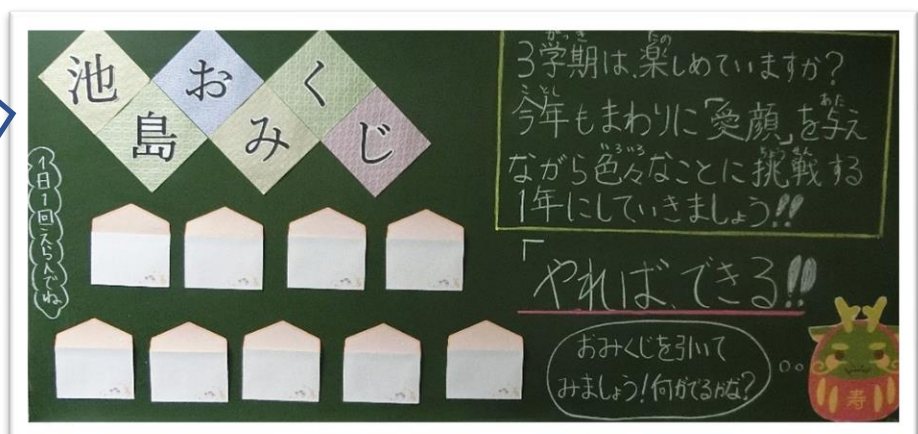 池島おみくじ
1日1回えらんでね
3学期は、楽しめていますか?
今年もまわりに「愛顔」を与え
ながら色々なことに挑戦する
1年にしていきましょう!!
「やれば、できる!!
おみくじを引いて
みましょう!何がでるかな?
寿